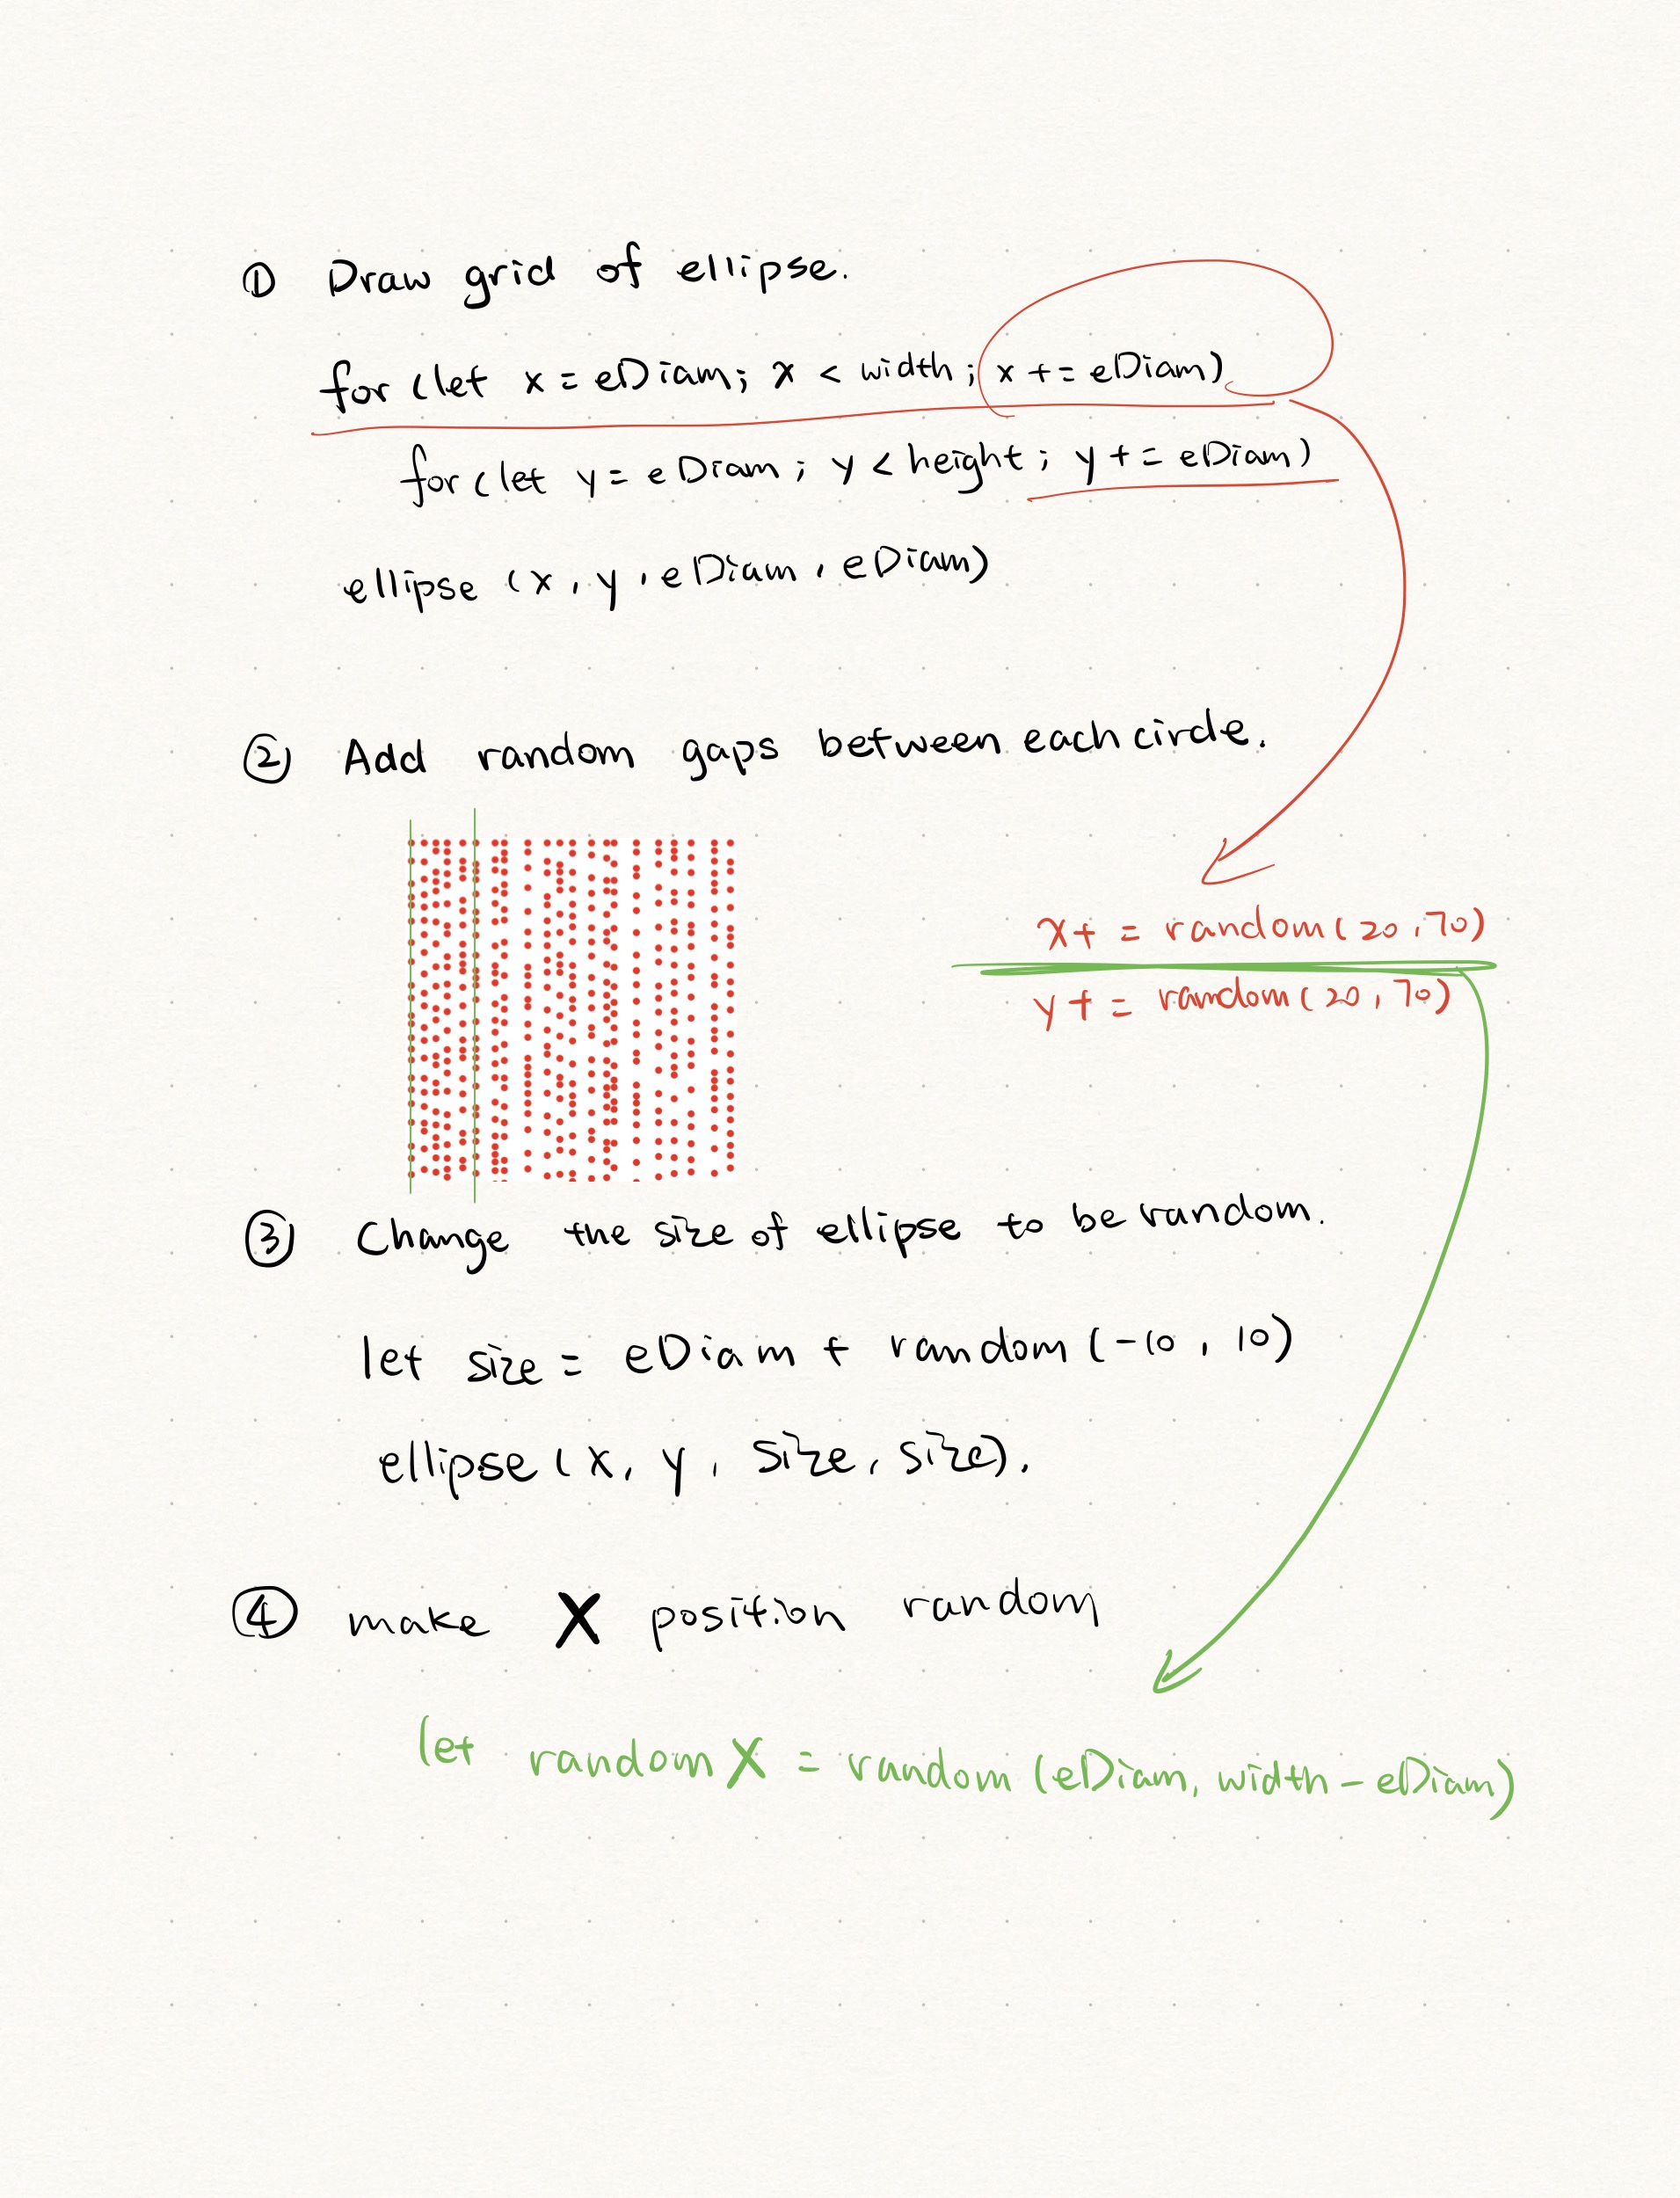 ① Draw grid of ellipse.
for (let x = eDiam; x < width; x += eDiam)
for (let y = eDiam; y < height; y += eDiam)
ellipse (x, y, eDiam, eDiam)
② Add random gaps between each circle.
x+ = random(20,70)
y+ = random(20,70)
③ Change the size of ellipse to be random.
let size = eDiam + random(-10, 10)
ellipse(x, y, size, size).
④ make X position random
let randomX = random (eDiam, width - eDiam)